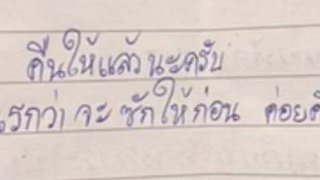 คืนให้แล้วนะครับ
แรกว่าจะซักให้ก่อน ค่อย